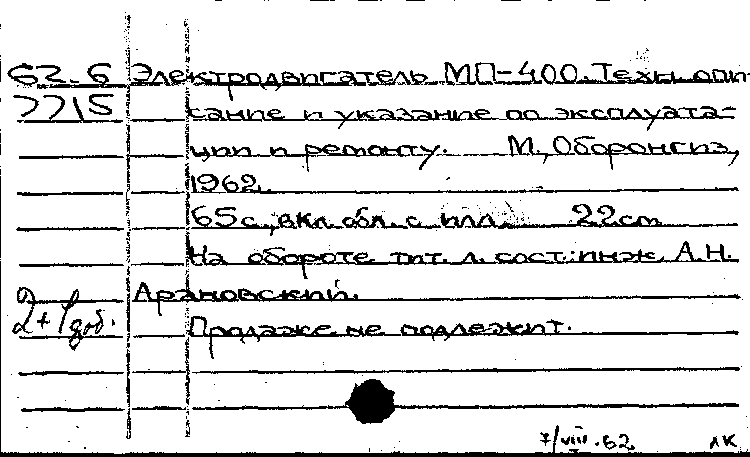 62.6 Электродвигатель МП-400. Техн. опи-
7715 сание и указание по эксплуата-
ции и ремонту. М., Оборонгиз,
1962.
65 с., вкл. обл. с илл. 22 см
На обороте тит. л. сост.: инж. А.Н.
Арановский.
2+1 доб. Продаже не подлежит.
7/VIII-62. лк